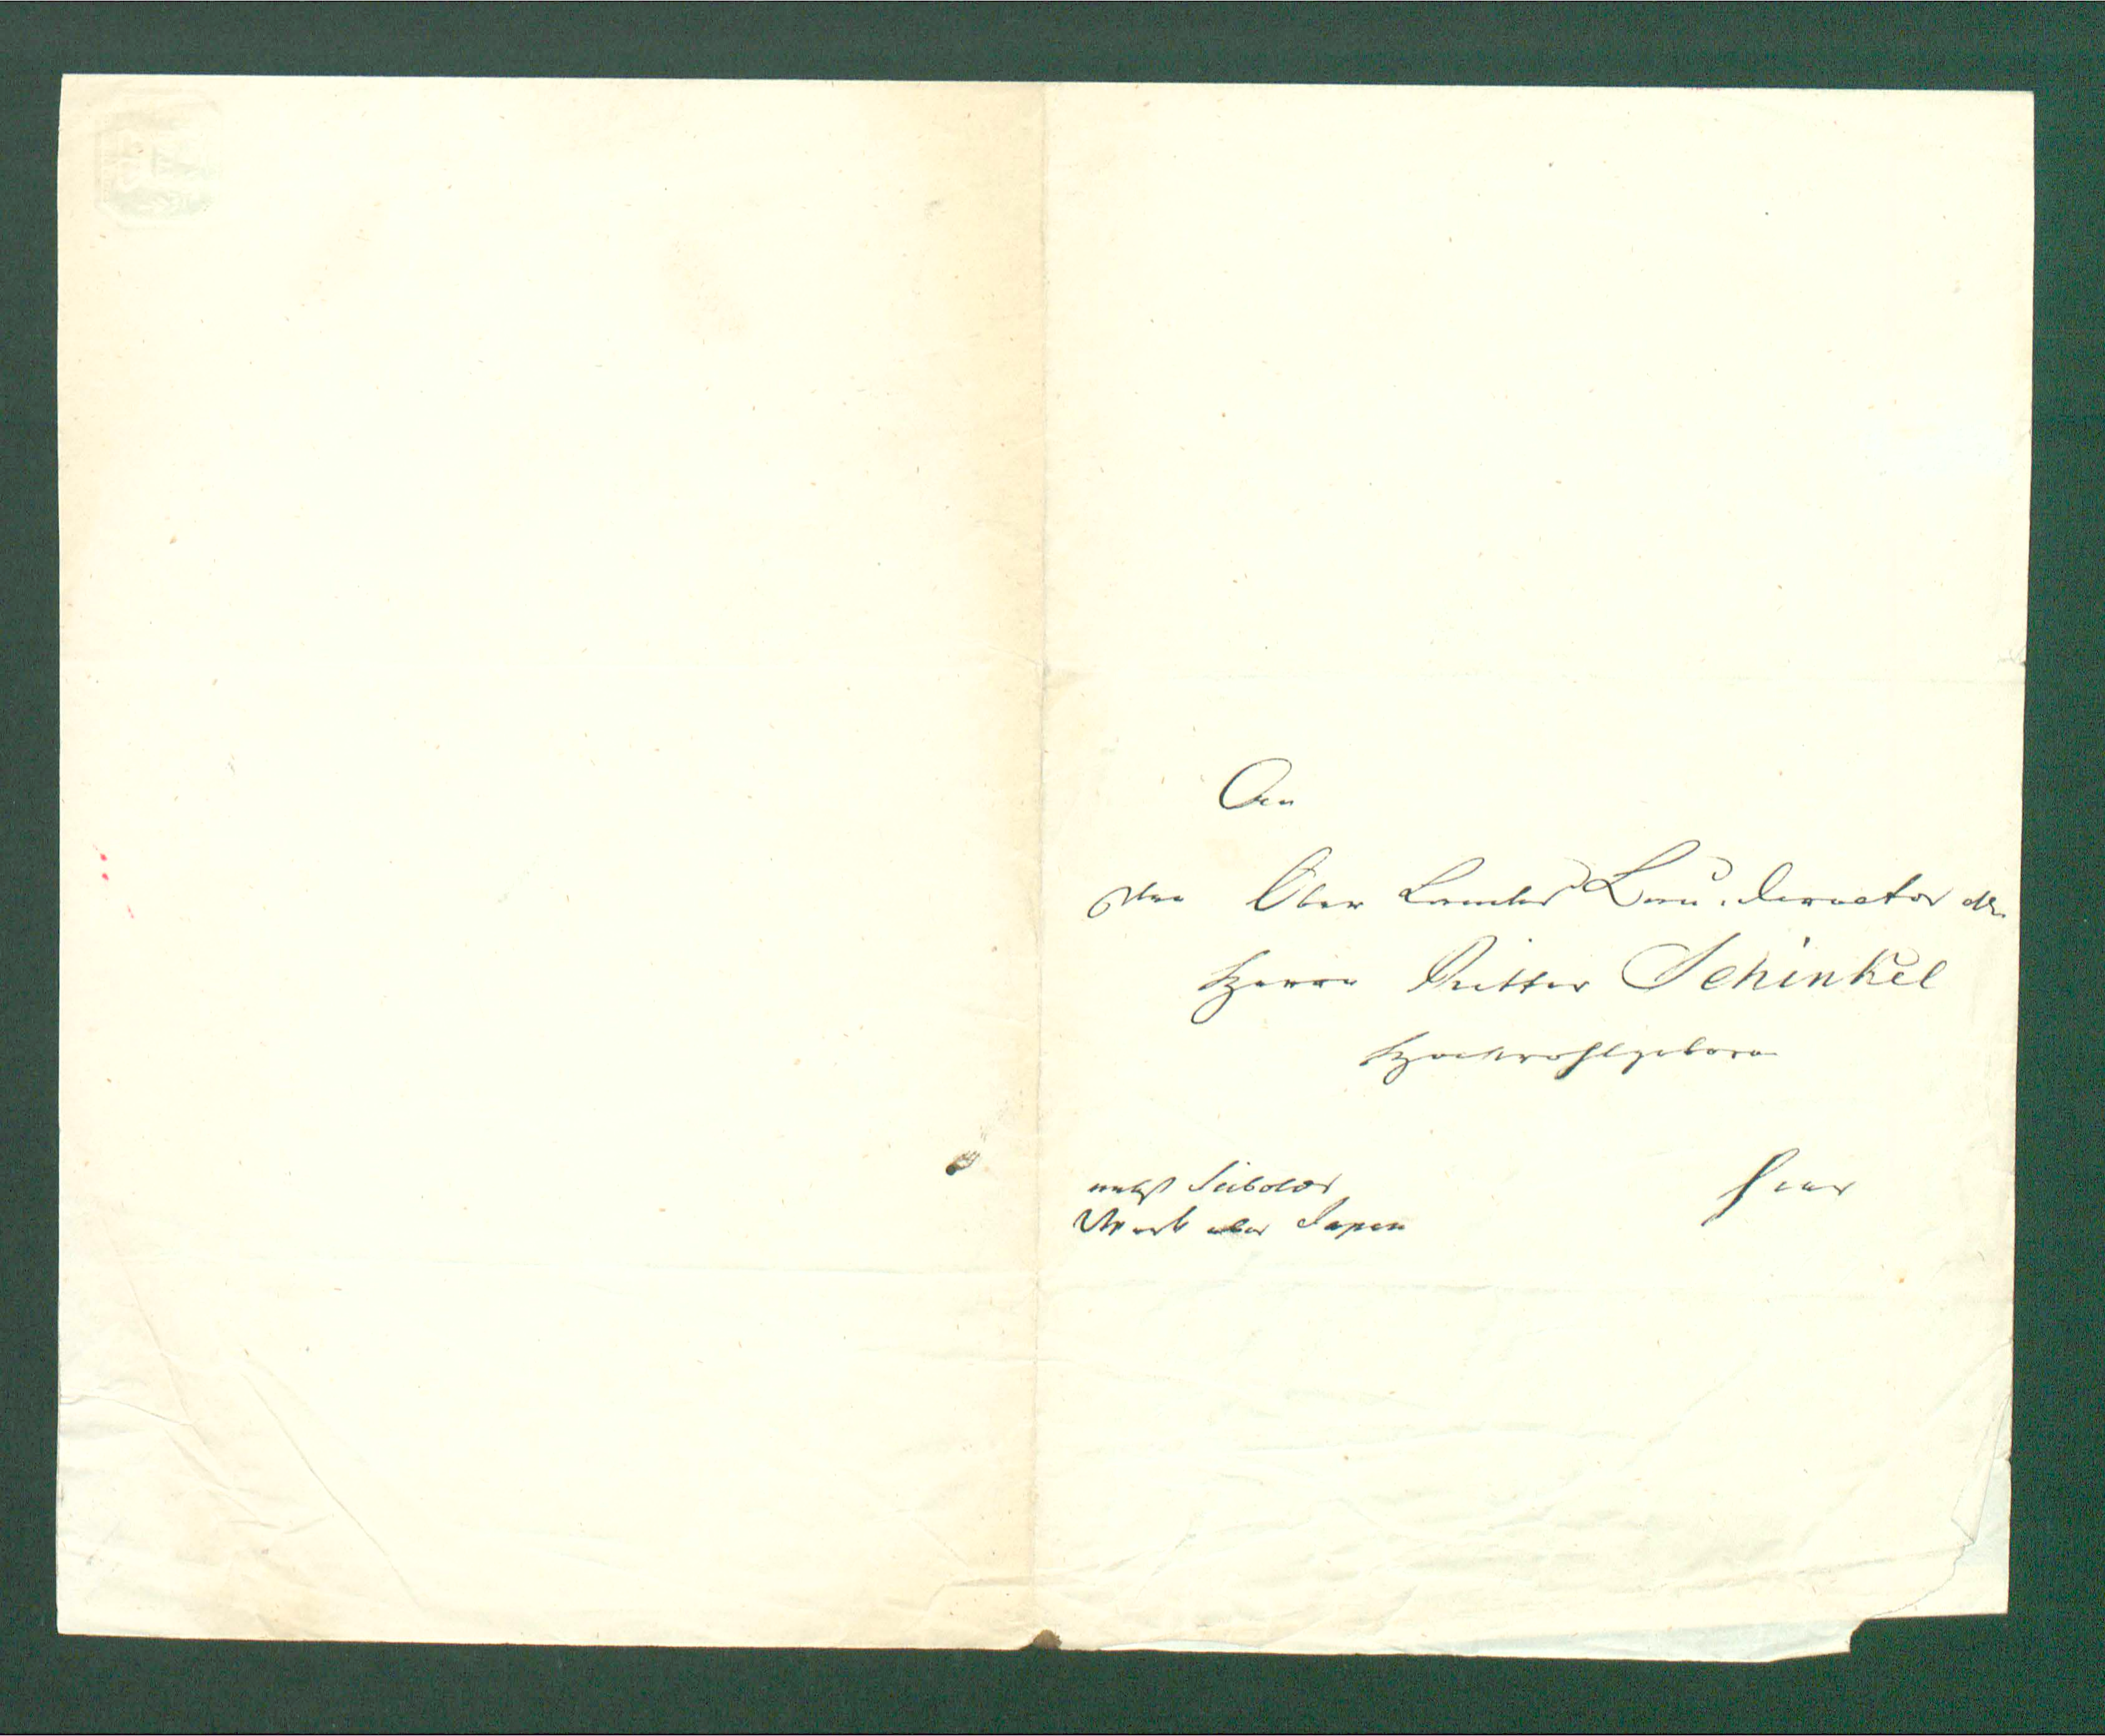 An
den Ober Landes Bau-Director etc.
Herrn Ritter Schinkel
Hochwohlgeboren
nebst Siebolds
Werk über Japan
hier